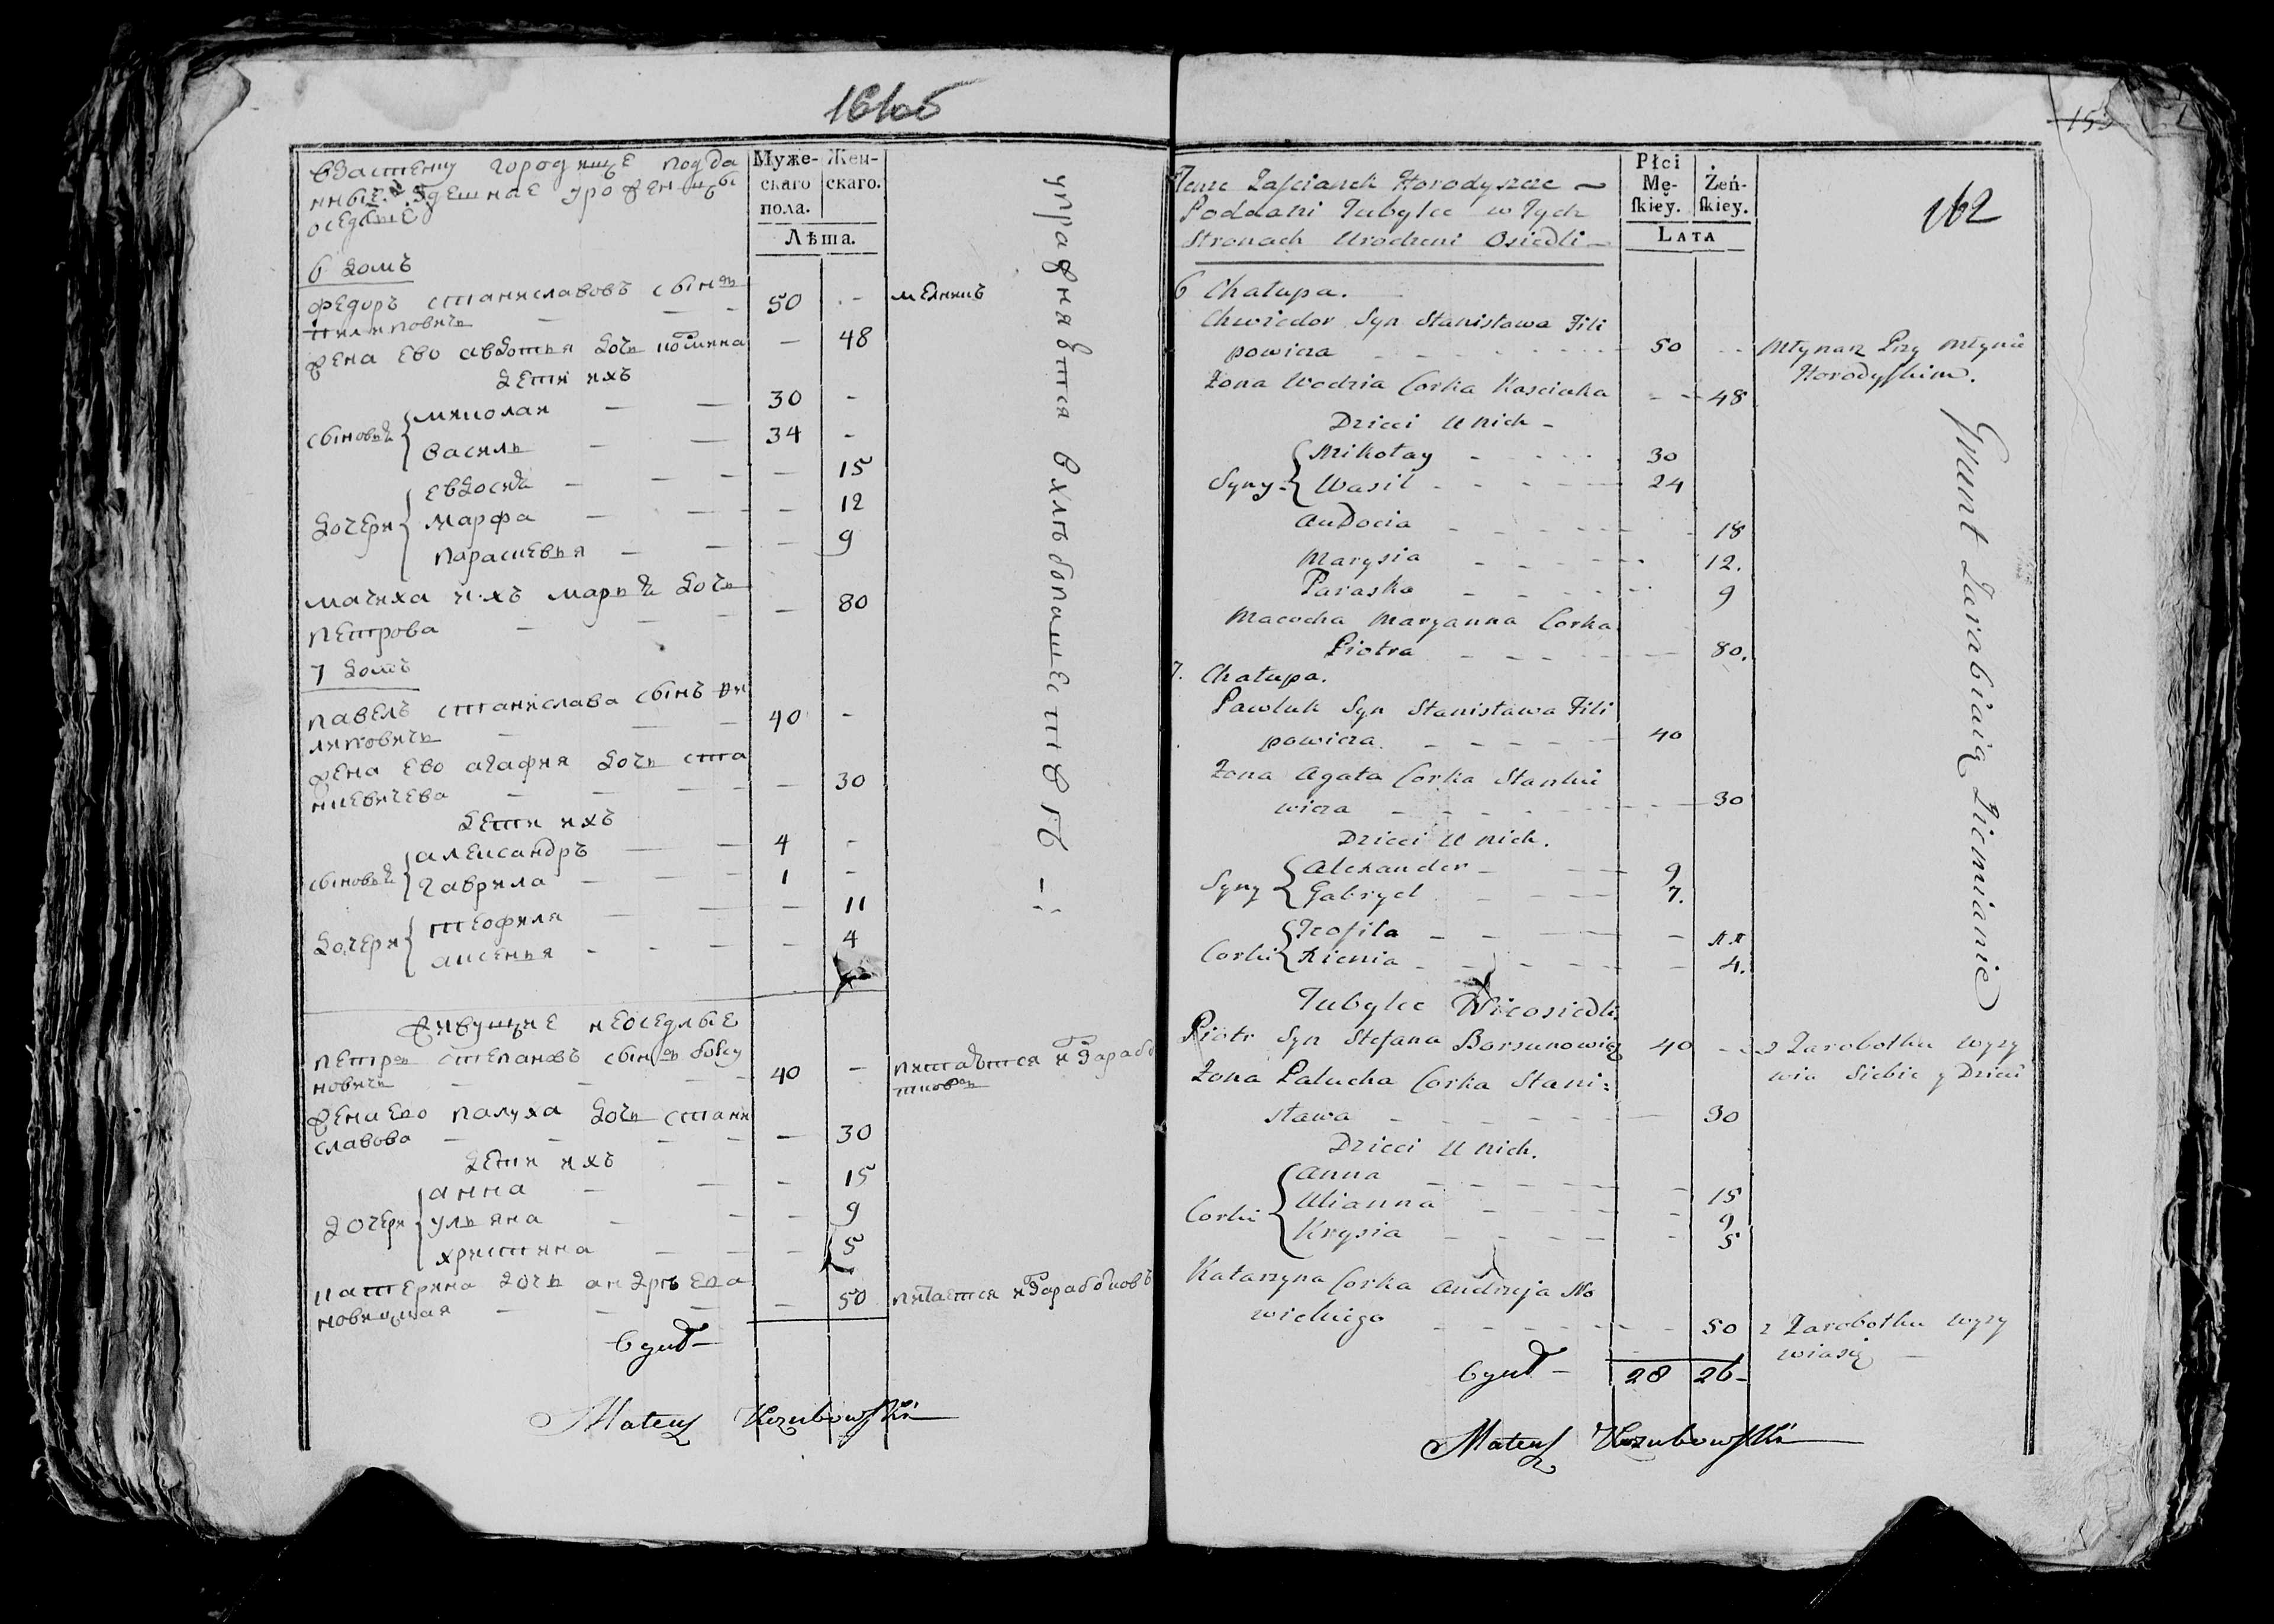 161об
Муже-
скаго
пола.
Жен-
скаго.
Лѣта.
6 домъ
федоръ станиславовъ сынъ
50 - мелникъ
жена ево авдотья дочь
- 48
дети ихъ
сыновья
миколай - - 30 -
василь - - 34 -
дочери
евдосия - - - 15
марфа - - - 12
парасцевья - - - 9
мачиха ихъ марья дочь
петрова - - - 80
7 домъ
павелъ станислава сынъ фи
липовичь - - 40 -
жена ево агафия дочь ста
нкевичева - - - 30
дети ихъ
сыновья
александръ - - 4 -
гаврила - - 1 -
дочери
теофиля - - - 11
аксенья - - - 4
живущие неоседлые
петръ степановъ сынъ борсу
новичь - - 40 -
жена ево палуха дочь стани
славова - - - 30
дети ихъ
дочери
анна - - - 15
ульяна - - - 9
христина - - - 5
катерина дочь андрѣева
новицкая - - - 50
Mateusz Kozubowski
162
Płci
Mę-
ſkiey.
Żeń-
ſkiey.
Lata
Tenże Zaścianek Horodyszcze
Poddani Tubylce w Tych
Stronach Urodzeni Osiedli
6 Chałupa.
Chwiedor Syn Stanisława Fili
powicza - 50 - Młynarz Przy Młynie
Horodyskim.
Zona Wodzia Corka Kasciuka - 48
Dzieci U nich -
Syny
Mikołay - 30
Wasil - 24
Audocia - 18
Marysia - 12.
Paraska - 9
Macocha Maryanna Corka
Piotra - 80.
7. Chałupa.
Pawluk Syn Stanisława Fili
powicza - 40
Zona Agata Corka Stankie
wicza - 30
Dzieci U nich.
Syny
Alexander - 9
Gabryel - 7.
Corki
Teofila - 11
Xienia - 4.
Tubylce Nieosiedli
Piotr Syn Stefana Borsunowicz 40 - z Zarobotku wyży
wia Siebie y Dzieci
Zona Palucha Corka Stani:
sława - 30
Dzieci U nich.
Corki
Anna - 15
Ulianna - 9
Krysia - 5
Katarzyna Corka Andrzeja No
wickiego - 50 z Zarobotku wyży
wia się
28 26-
Mateusz Kozubowski
Grunt Zarabiaią Ziemianie